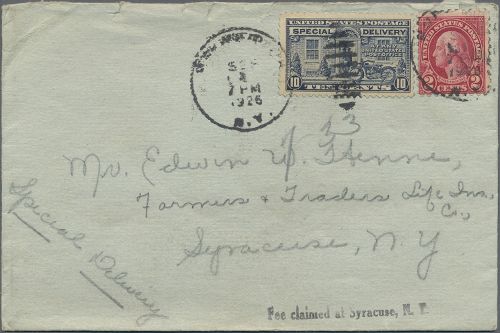 SEP
7 PM
1926
N.Y.
UNITED STATES POSTAGE
SPECIAL DELIVERY
AT ANY
UNITED STATES
POST OFFICE
10 TEN CENTS 10
UNITED STATES POSTAGE
2 CENTS 2
13
Mr. Edwin W. Henne,
Farmers & Traders Life Ins.
Co.,
Syracuse, N. Y.
Special Delivery
Fee claimed at Syracuse, N. Y.